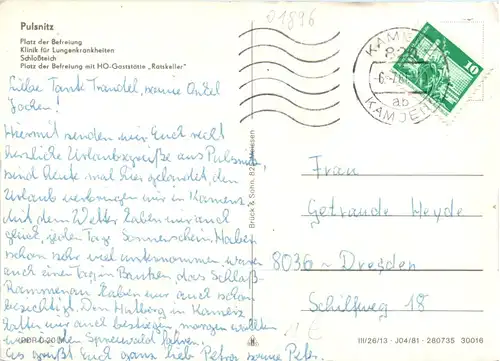 Pulsnitz
Platz der Befreiung
Klinik für Lungenkrankheiten
Schloßteich
Platz der Befreiung mit HO-Gaststätte „Ratskeller"
Liebe Tante Traudel, Onkel
Jochen!
Hiermit senden wir Euch recht
herzliche Urlaubsgrüße aus Pulsnitz,
sind heute mal hier gelandet, den
Urlaub verbringen wir in Kamenz
Mit dem Wetter haben wir auch
Glück, jeden Tag Sonnenschein. Haben
schon sehr viel unternommen, waren
auch einen Tag in Bautzen, das
haben wir auch schon
besichtigt. Den Hutberg in Kamenz
hatten wir auch bestiegen, morgen wollten
Spreewald fahren.
Es grüßt Euch ganz lieb Petra
01896
KAMENZ
828
ab
KAMJENC
10
Brück & Sohn, 825 Meissen
Frau
Getraude Heyde
8036 - Dresden
Schilfweg 18
1 €
III/26/13 · J04/81 · 280735 30016